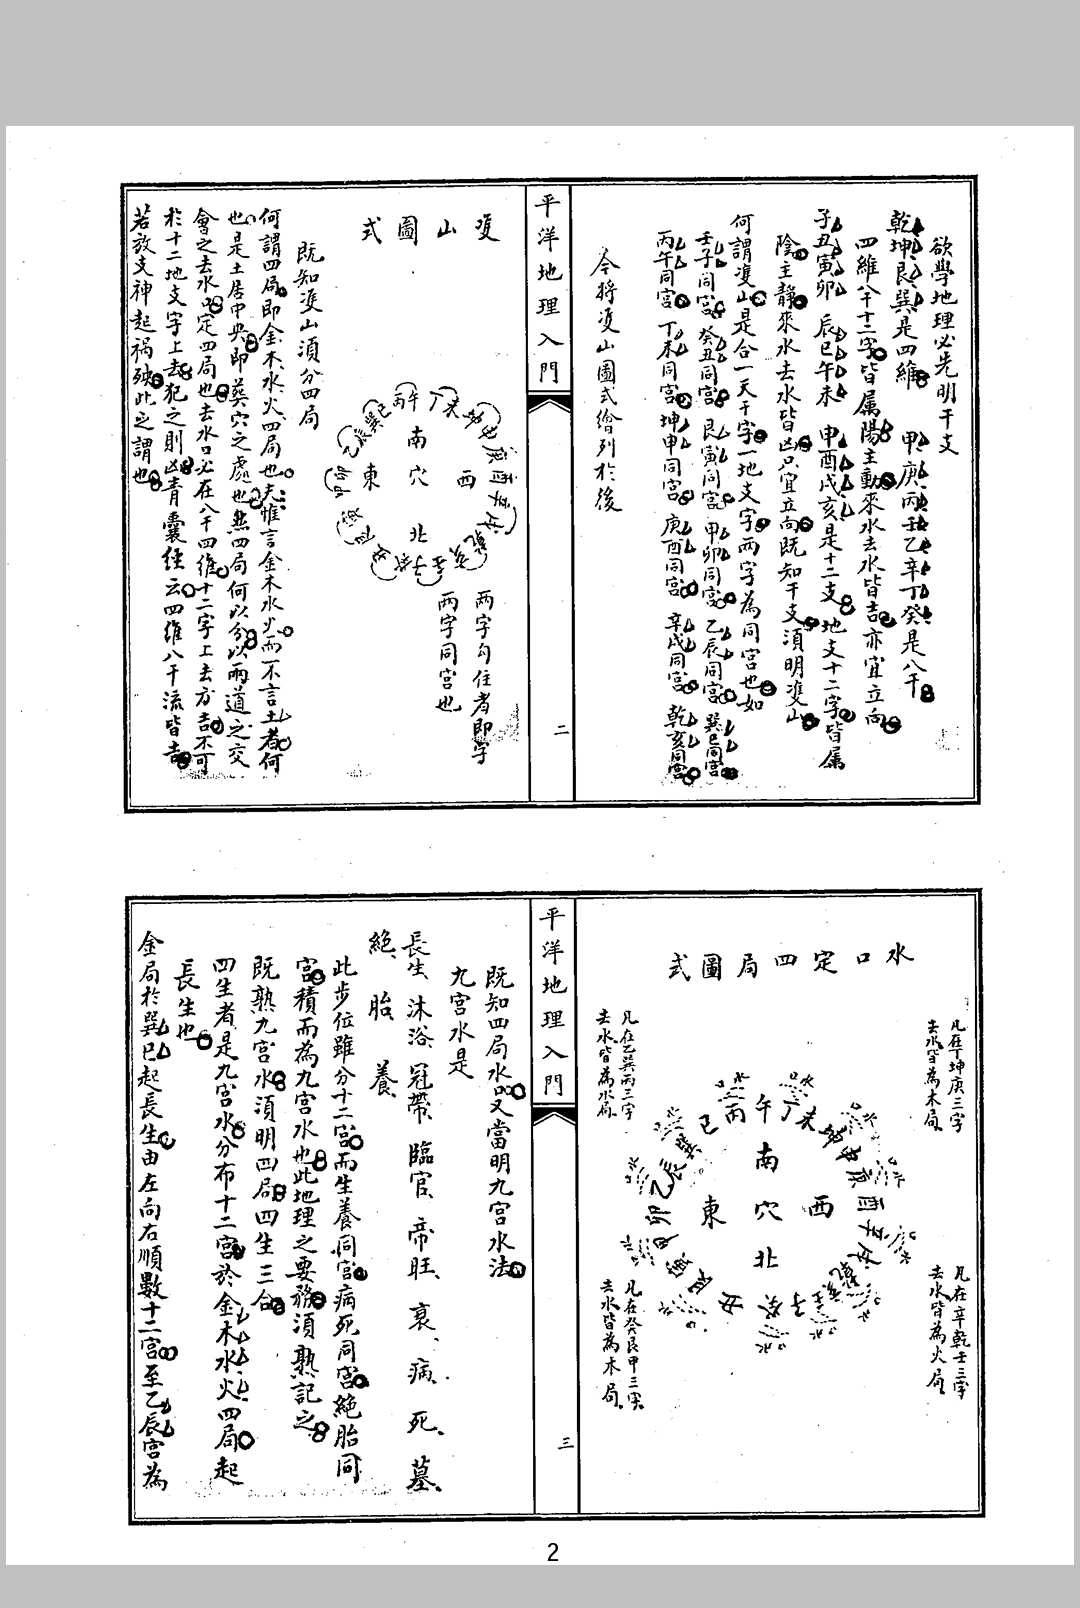 欲學地理必先明干支
乾坤艮巽是四維 甲庚丙壬乙辛丁癸是八干
四維八干十二字皆属陽主動來水去水皆吉亦宜立向
子丑寅卯 辰巳午未 申酉戌亥是十二支 地支十二字皆属
陰主静來水去水皆凶只宜立向既知干支須明雙山
何謂雙山是合一天干字一地支字兩字為同宮也如
壬子同宮 癸丑同宮 艮寅同宮 甲卯同宮 乙辰同宮 巽巳同宮
丙午同宮 丁未同宮 坤申同宮 庚酉同宮 辛戌同宮 乾亥同宮
今将雙山圖式繪列於後
平洋地理入門
二
雙山圖式
南
東 穴 西
北
丙午 丁未 坤申 庚酉 辛戌 乾亥 壬子 癸丑 艮寅 甲卯 乙辰 巽巳
兩字勾住者即字
兩字同宮也
既知雙山須分四局
何謂四局即金木水火四局也夫惟言金木水火而不言土者何
也是土居中央即葬穴之處也然四局何以分以兩道之交
會之去水口定四局也去水口必在八干四維十二字上去方吉不可
於十二地支字上去犯之則凶青囊經云四維八干流皆吉
若放支神起禍殃此之謂也
水口定四局圖式
凡在丁坤庚三字
去水皆為木局
凡在乙巽丙三字
去水皆為水局
南
東 穴 西
北
午 丁 未 坤 申 庚 酉 辛 戌 乾 亥 壬 子 癸 丑 艮 寅 甲 卯 乙 辰 巽 巳 丙
凡在辛乾壬三字
去水皆為火局
凡在癸艮甲三字
去水皆為木局
平洋地理入門
三
既知四局水口又當明九宮水法
九宮水是
長生、沐浴、冠帶、臨官、帝旺、衰、病、死、墓、
絕、胎、養、
此步位雖分十二宮而生養同宮病死同宮絕胎同
宮積而為九宮水也此地理之要務須熟記之
既熟九宮水須明四局四生三合
四生者是九宮水分布十二宮於金木水火四局起
長生也
金局於巽巳起長生由左向右順數十二宮至乙辰宮為
2